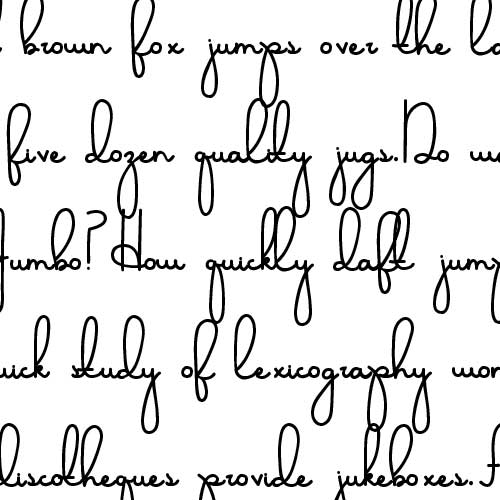 brown fox jumps over the la
five dozen quality jugs.Do wa
umbo?How quickly daft jump
uick study of lexicography won
discotheques provide jukeboxes.